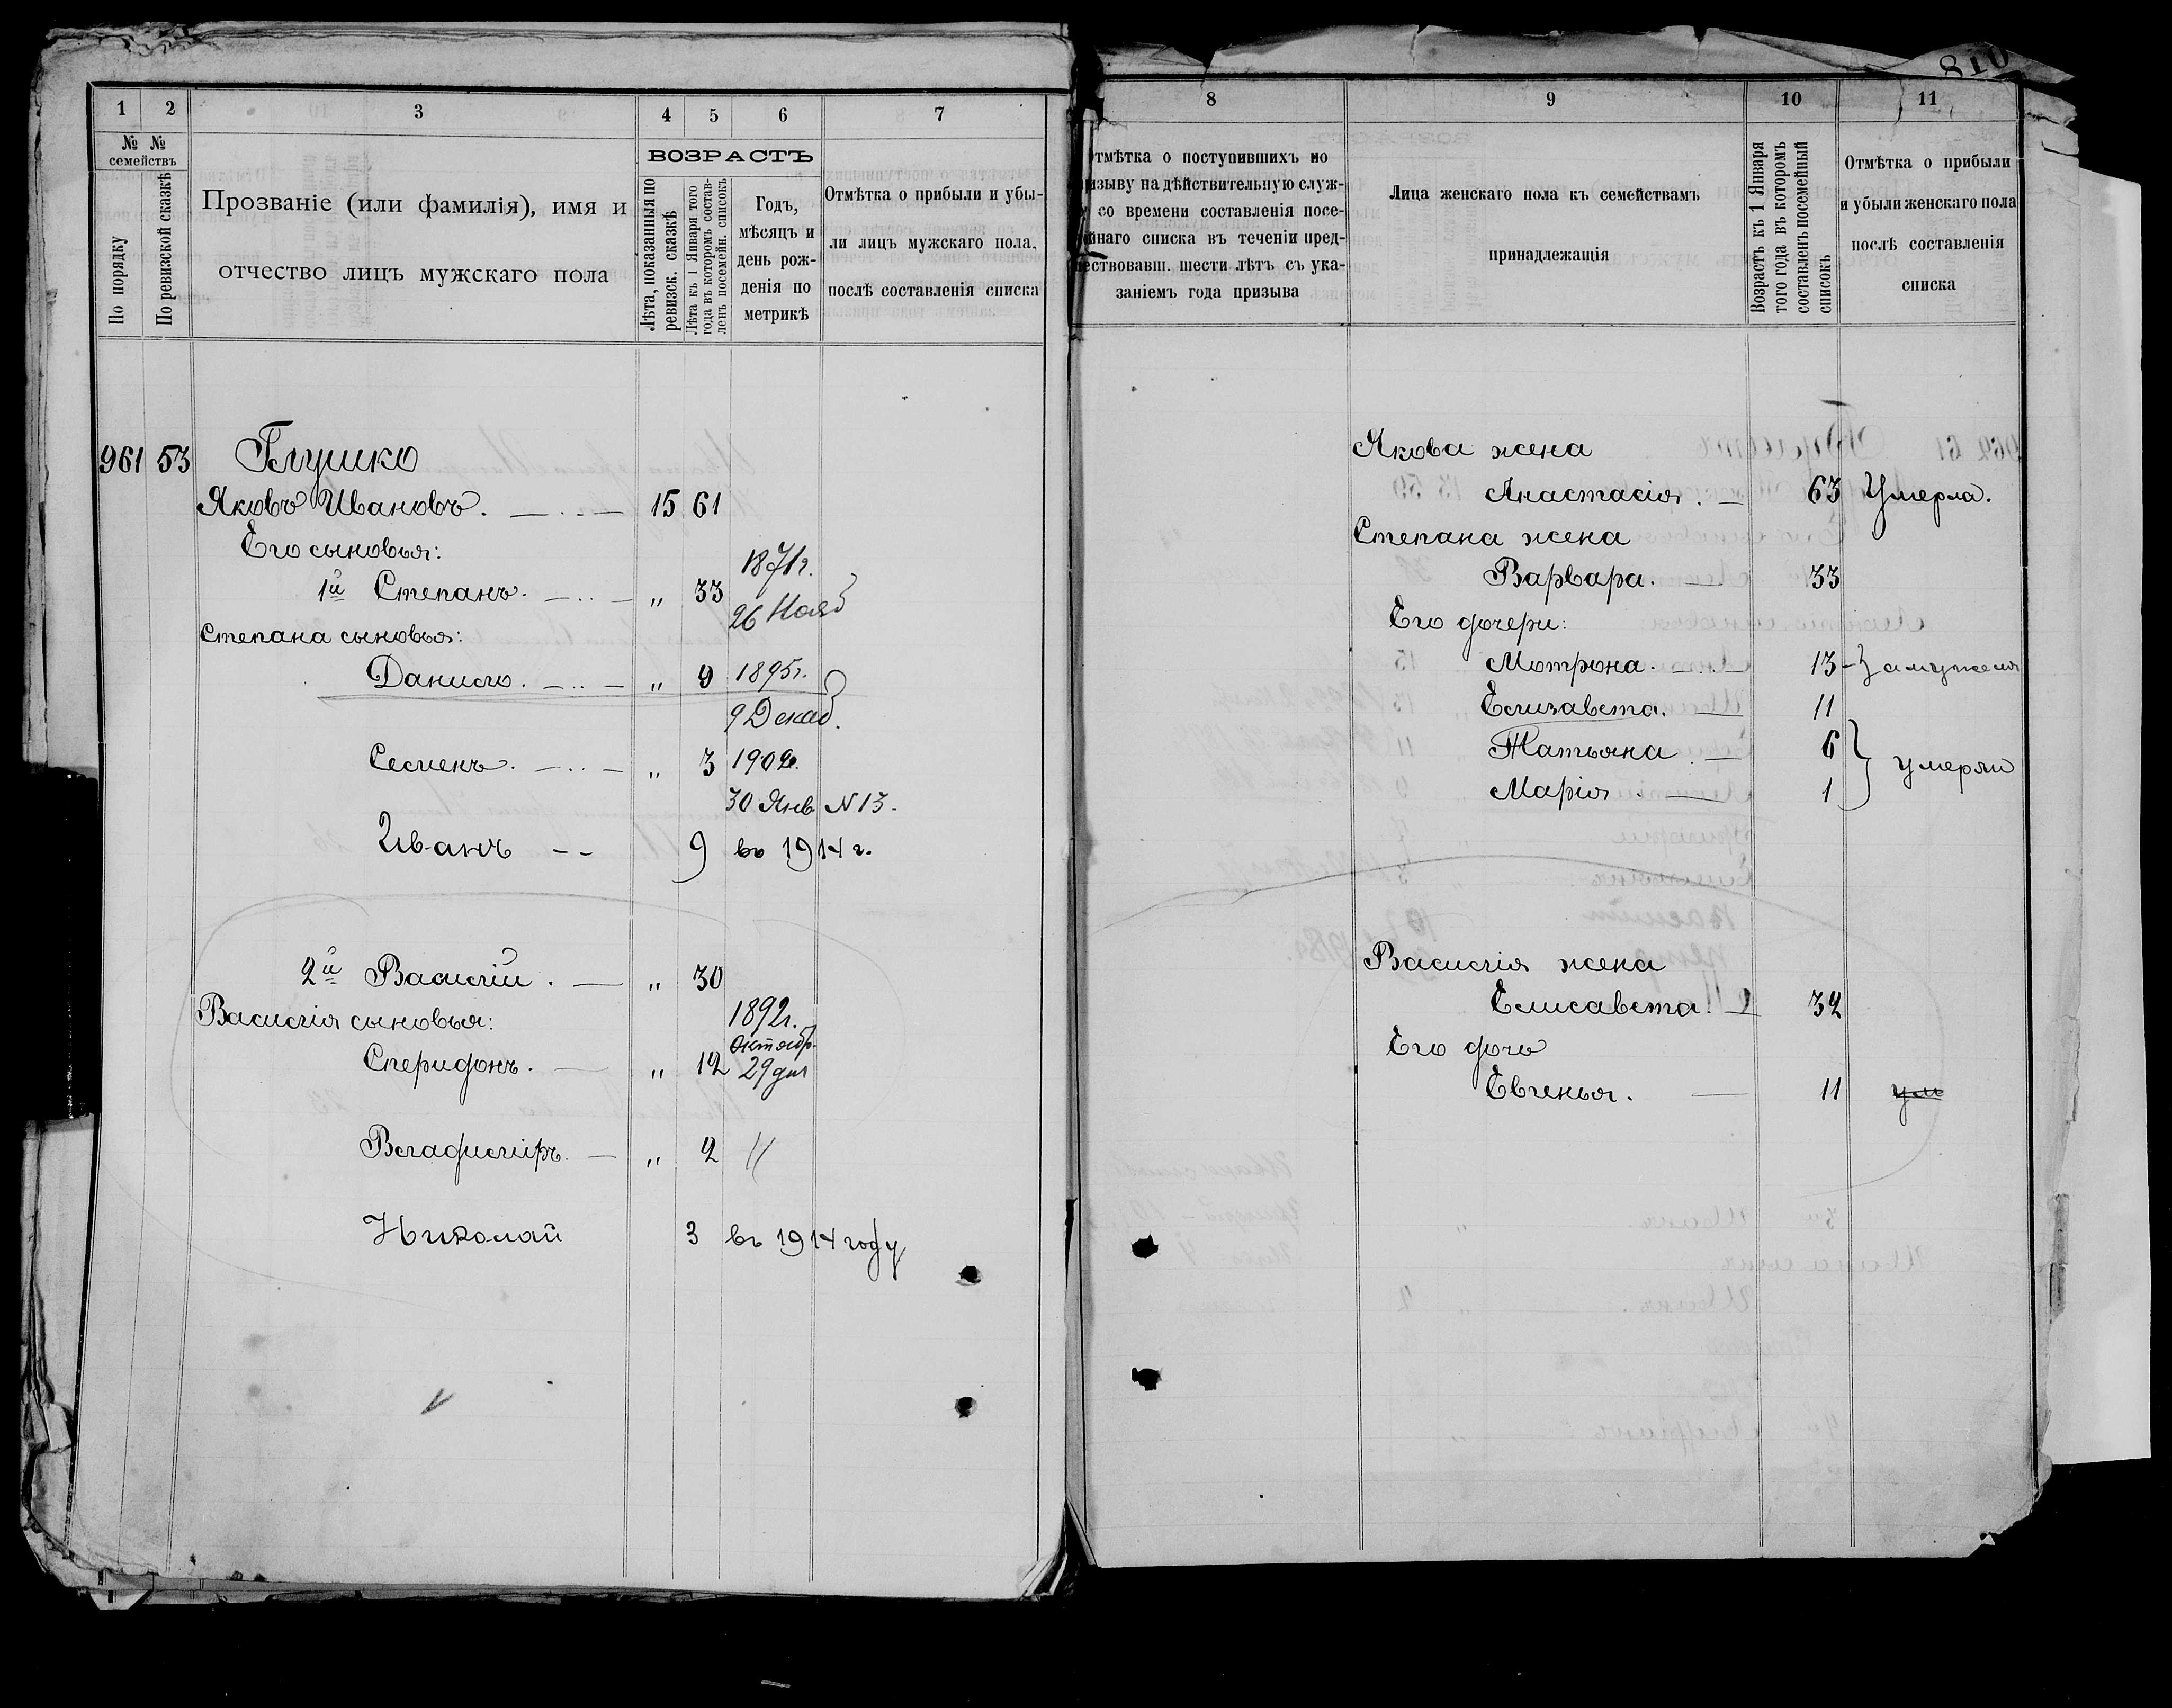 810
1 2 3 4 5 6 7
№ № семействъ
По порядку
По ревизской сказкѣ
Прозваніе (или фамилія), имя и
отчество лицъ мужскаго пола
ВОЗРАСТЪ
Лѣта, показанныя по
ревизск. сказкѣ
Лѣта къ 1 Января того
года въ которомъ состав-
ленъ посемейн. списокъ
Годъ,
мѣсяцъ и
день рож-
денія по
метрикѣ
Отмѣтка о прибыли и убы-
ли лицъ мужскаго пола,
послѣ составленія списка
961 53 Глушко
Яковъ Ивановъ. 15 61
Его сыновья:
1й Степанъ. „ 33 1871г.
26 Нояб
Степана сыновья:
Данило. „ 9 1895г.
9 Декаб.
Семенъ. „ 3 1902г.
30 Янв N 13.
Иванъ -- 9 въ 1914 г.
2й Василій. „ 30
Василія сыновья: 1892г.
Октябр.
Сперидонъ. „ 12 29 дня
Владиміръ. „ 2 „
Николай 3 въ 1914 году
8 9 10 11
отмѣтка о поступившихъ по
призыву на дѣйствительную служ-
со времени составленія посе-
йнаго списка въ теченіи пред-
шествовавш. шести лѣтъ съ ука-
заніемъ года призыва
Лица женскаго пола къ семействамъ
принадлежащія
Возрастъ къ 1 Января
того года въ которомъ
составленъ посемейный
списокъ
Отмѣтка о прибыли
и убыли женскаго пола
послѣ составленія
списка
Якова жена
Анастасія. 63 Умерла.
Степана жена
Варвара. 33
Его дочери:
Мотрона. 13 - Замужемъ
Елизавета. 11
Татьяна. 6
умерли
Марія 1
Василія жена
Елисавета. 32
Его дочь
Евгенья. 11 ум